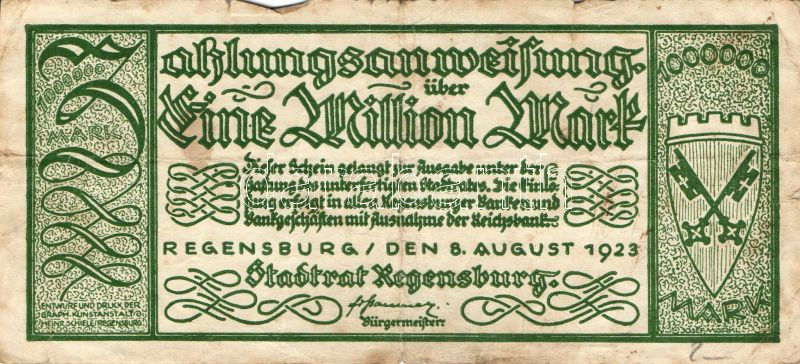 1000000
MARK
Zahlungsanweisung.
über
Eine Million Mark
Dieser Schein gelangt zur Ausgabe unter der
Haftung des unterfertigten Stadtrates. Die Einlö-
sung erfolgt in allen Regensburger Banken und
Bankgeschäften mit Ausnahme der Reichsbank.
REGENSBURG / DEN 8. AUGUST 1923
Stadtrat Regensburg.
Bürgermeister.
ENTWURF UND DRUCK DER
GRAPH. KUNSTANSTALT
HEINR. SCHIELE / REGENSBURG
1000000
MARK